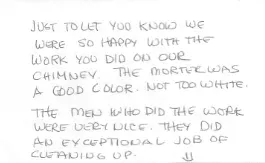 JUST TO LET YOU KNOW WE
WERE SO HAPPY WITH THE
WORK YOU DID ON OUR
CHIMNEY. THE MORTER WAS
A GOOD COLOR. NOT TOO WHITE.
THE MEN WHO DID THE WORK
WERE VERY NICE. THEY DID
AN EXCEPTIONAL JOB OF
CLEANING UP.